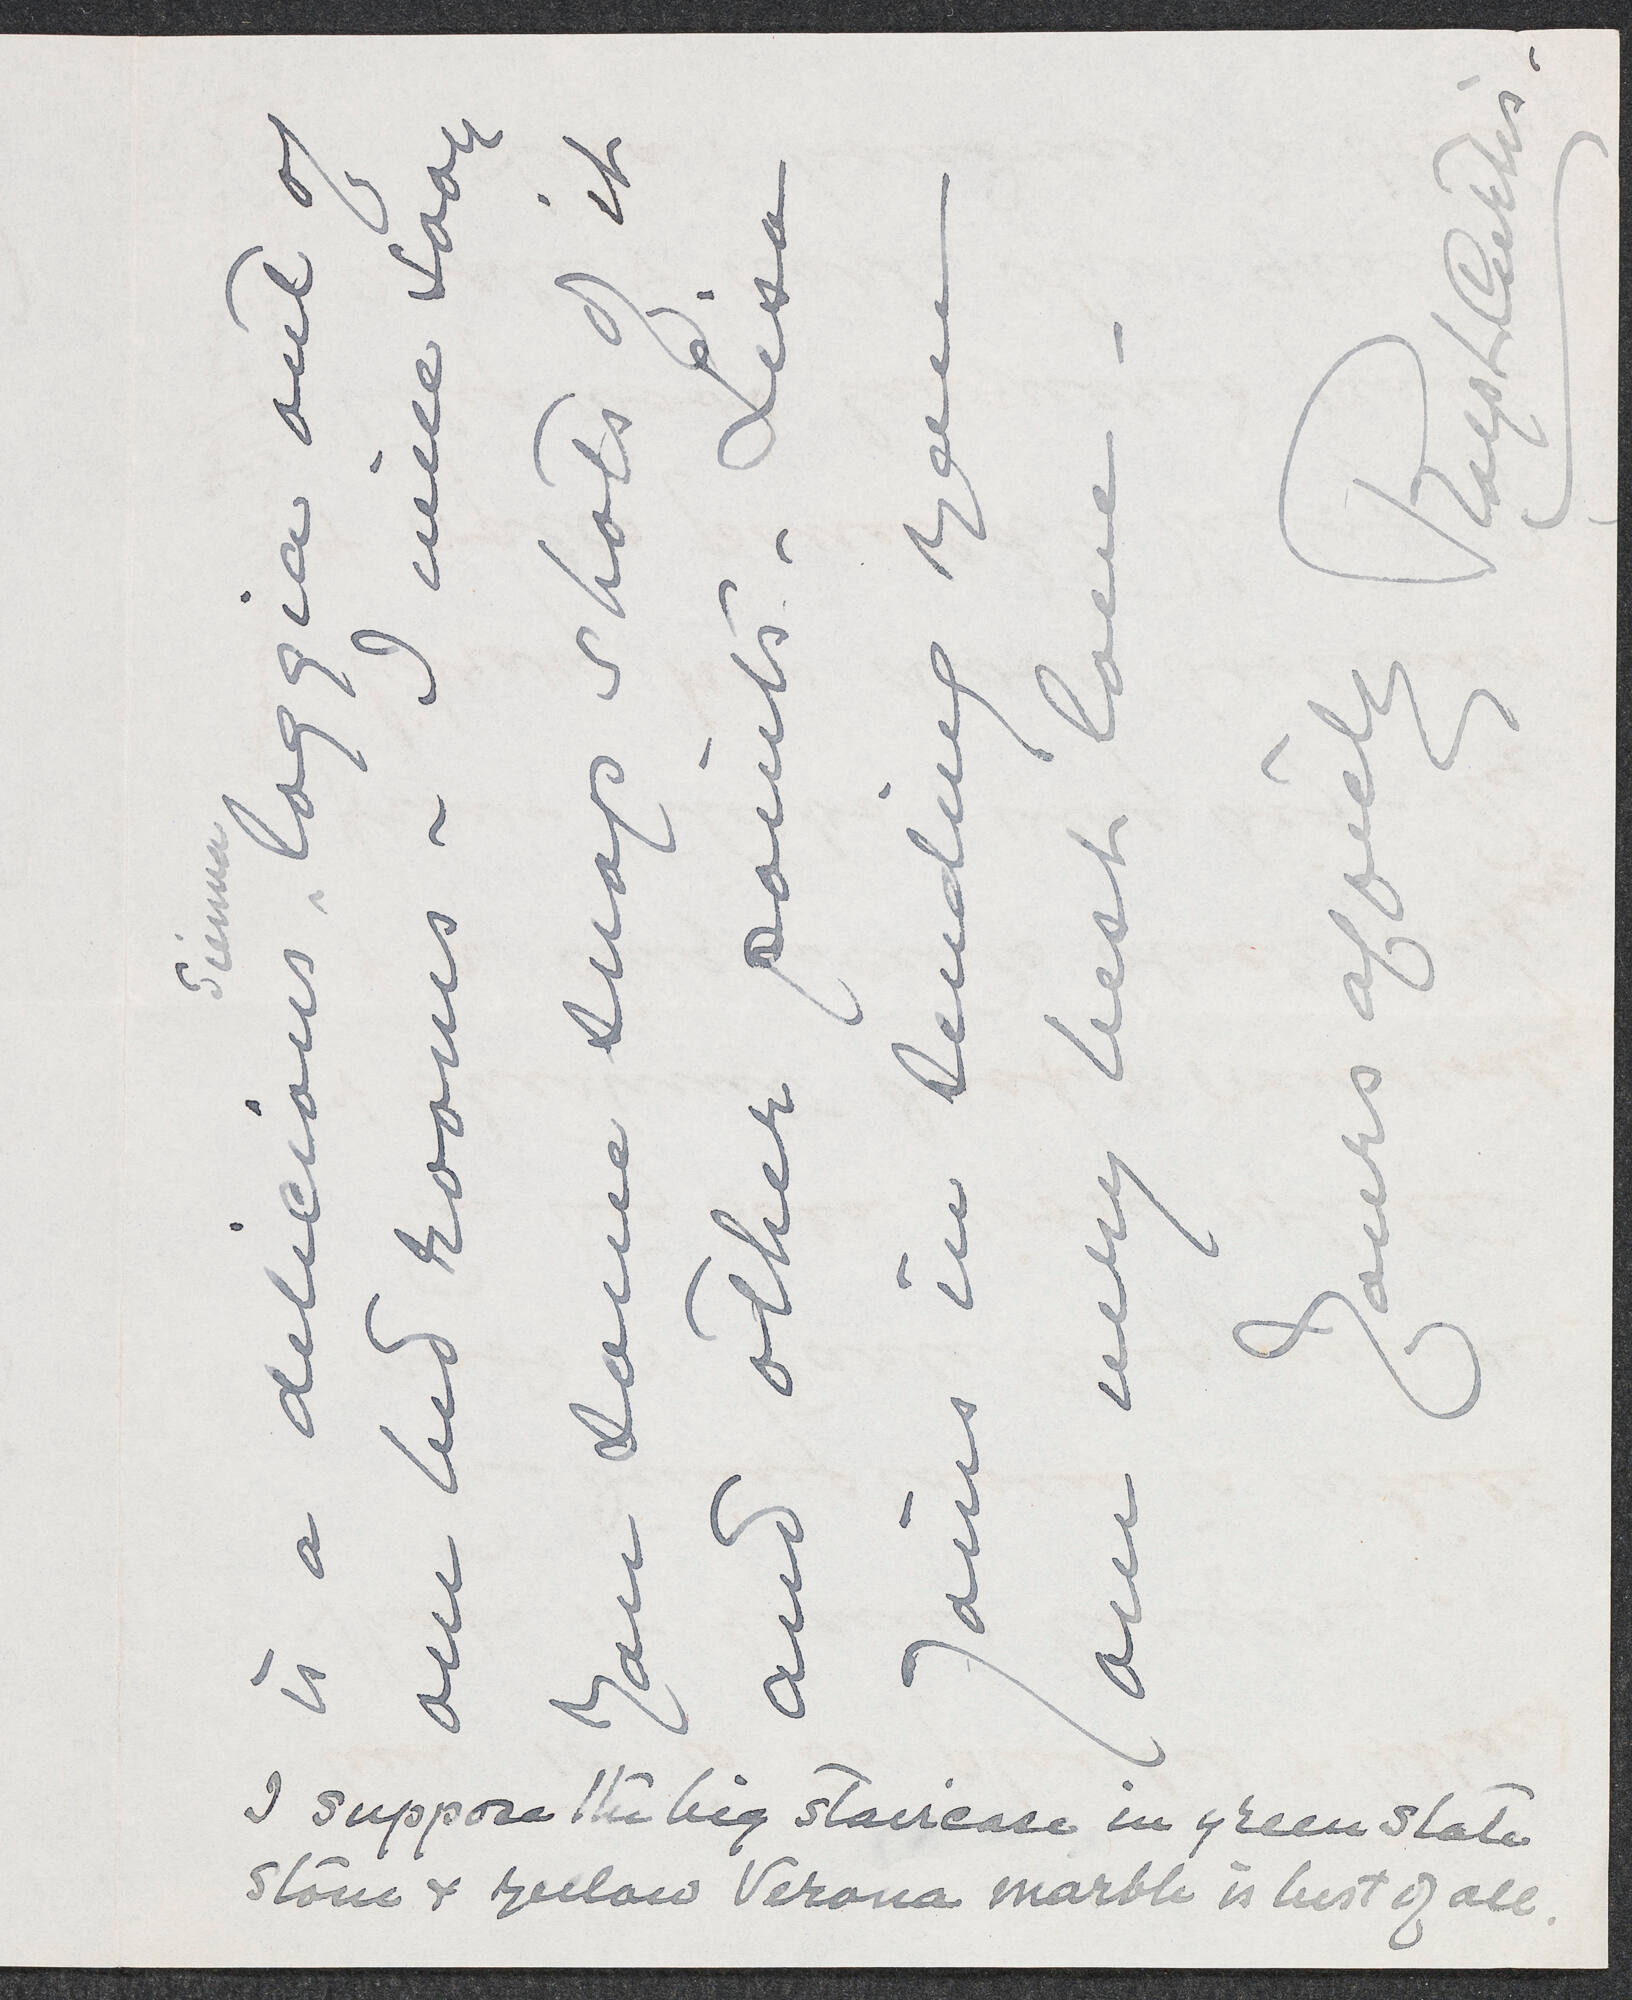 is a delicious ^Sienna loggia out of
our bed rooms - I will bring
you some snap shots of it
and other points. Lisa
joins in sending you
our very best love -
Yours affectly
Ralph Curtis.
I suppose the big staircase in green slate
stone & yellow Verona marble is best of all.